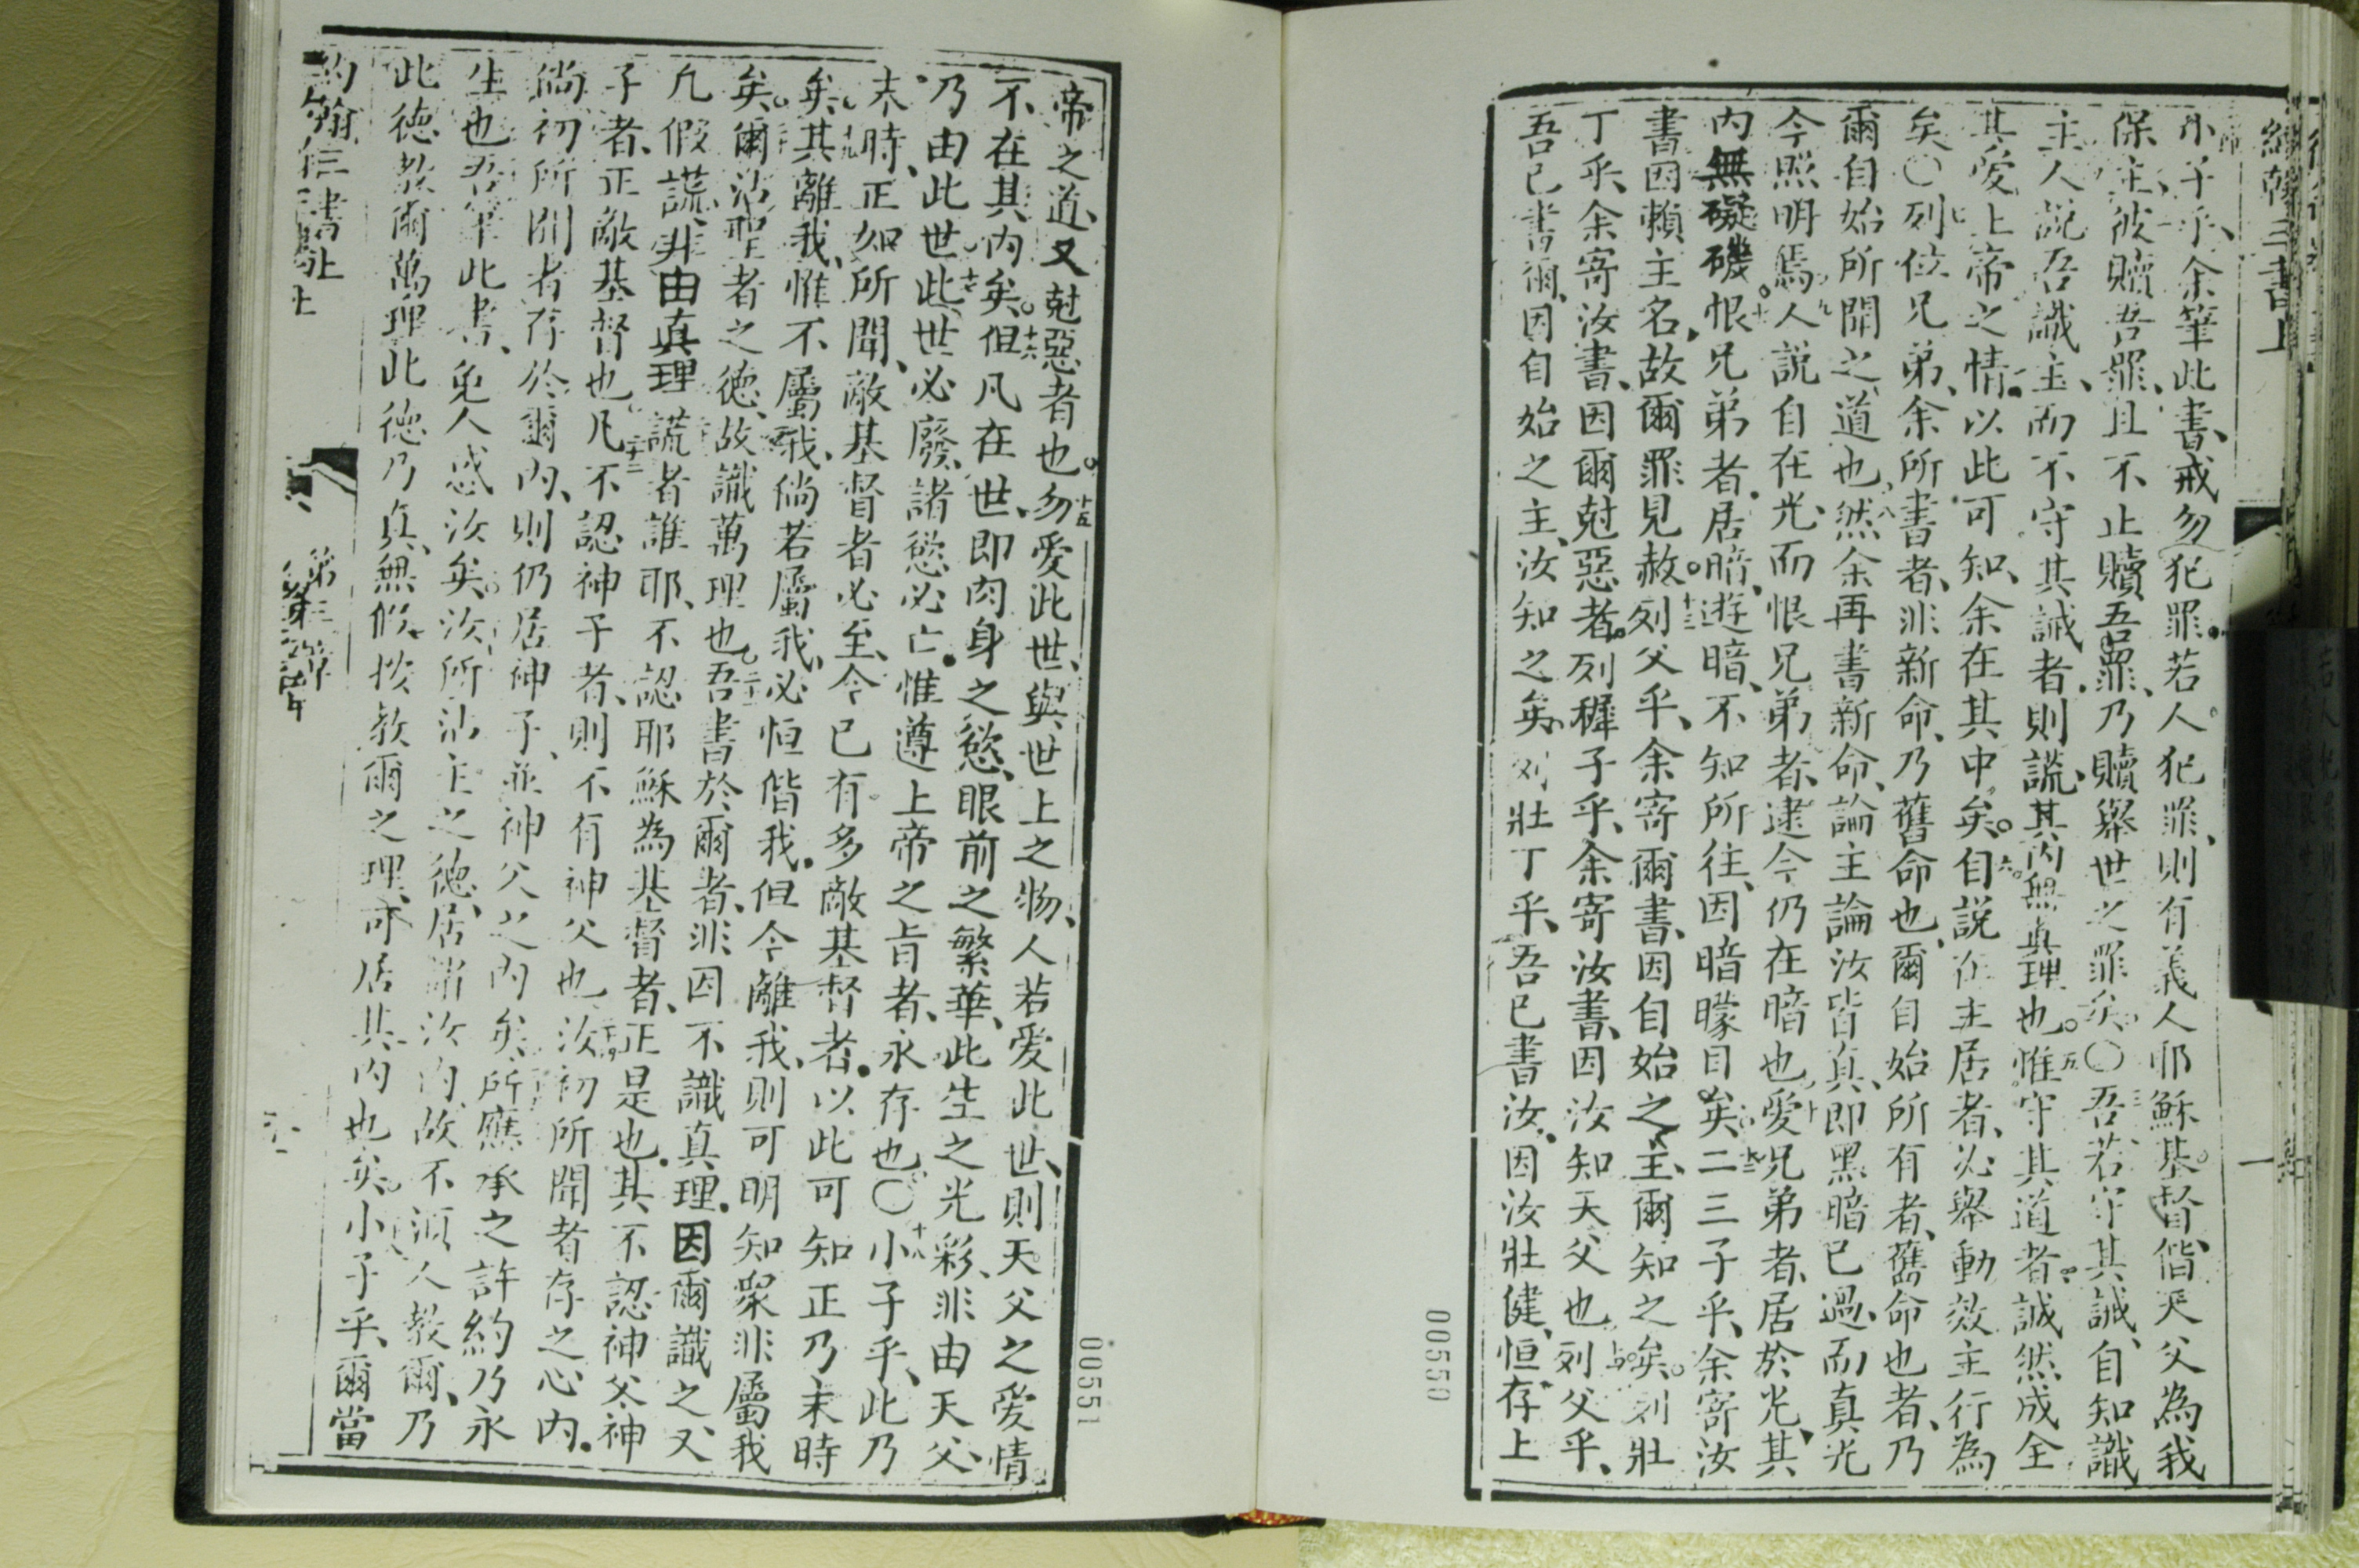 約翰三書上
小子乎、余筆此書、戒勿犯罪、若人犯罪、則有義人耶穌基督、偕天父為我
保主、彼贖吾罪、且不止贖吾罪、乃贖舉世之罪矣○吾若守其誡、自知識
主、人說吾識主、而不守其誡者、則謊、其內無真理也。五惟守其道者、誠然成全
其愛上帝之情、以此可知、余在其中矣。六自說在主居者、必舉動效主行為
矣○列位兄弟、余所書者、非新命、乃舊命也、爾自始所有者、舊命也者、乃
爾自始所聞之道也、八然余再書新命、論主論汝皆真、即黑暗已過、而真光
今照明焉、九人說自在光、而恨兄弟者、逮今仍在暗也、十愛兄弟者、居於光、其
內無礙磯。恨兄弟者、居暗、遊暗、不知所往、因暗矇目矣。二三子乎、余寄汝
書、因賴主名、故爾罪見赦。十三列父乎、余寄爾書、因自始之主、爾知之矣。列壯
丁乎、余寄汝書、因爾尅惡者。列穉子乎、余寄汝書、因汝知天父也。列父乎、
吾已書爾、因自始之主、汝知之矣。列壯丁乎、吾已書汝、因汝壯健、恒存上
00550
帝之道、又尅惡者也。十五勿愛此世、與世上之物、人若愛此世、則天父之愛情
不在其內矣。十六但凡在世、即肉身之慾、眼前之繁華、此生之光彩、非由天父、
乃由此世、十七此世必廢、諸慾必亡、惟遵上帝之旨者、永存也○十八小子乎、此乃
末時、正如所聞、敵基督者必至、今已有多敵基督者、以此可知正乃末時
矣。十九其離我、惟不屬我、倘若屬我、必恒偕我、但今離我、則可明知眾非屬我
矣。二十爾沾聖者之德、故識萬理也。二十一吾書於爾者、非因不識真理、因爾識之、又
凡假謊、非由真理、謊者誰耶、不認耶穌為基督者、正是也、其不認神父神
子者、正敵基督也、二十三凡不認神子者、則不有神父也、汝初所聞者、存之心內、
倘初所聞者、存於爾內、則仍居神子、並神父之內矣、所應承之許約、乃永
生也、吾筆此書、免人惑汝矣。汝所沾主之德、居諸汝內、故不須人教爾、乃
此德教爾萬理、此德乃真、無假、按教爾之理、可居其內也矣。小子乎、爾當
約翰三書上
第二章
00551